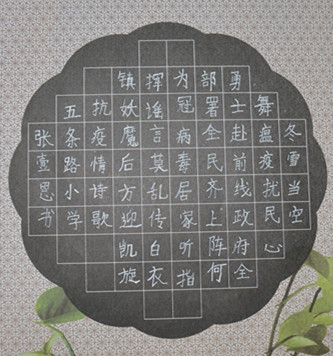 冬雪当空
舞瘟疫扰民心
勇士赴前线政府全
部署全民齐上阵何
为冠病毒居家听指
挥谣言莫乱传白衣
镇妖魔后方迎凯旋
抗疫情诗歌
五条路小学
张壹思书